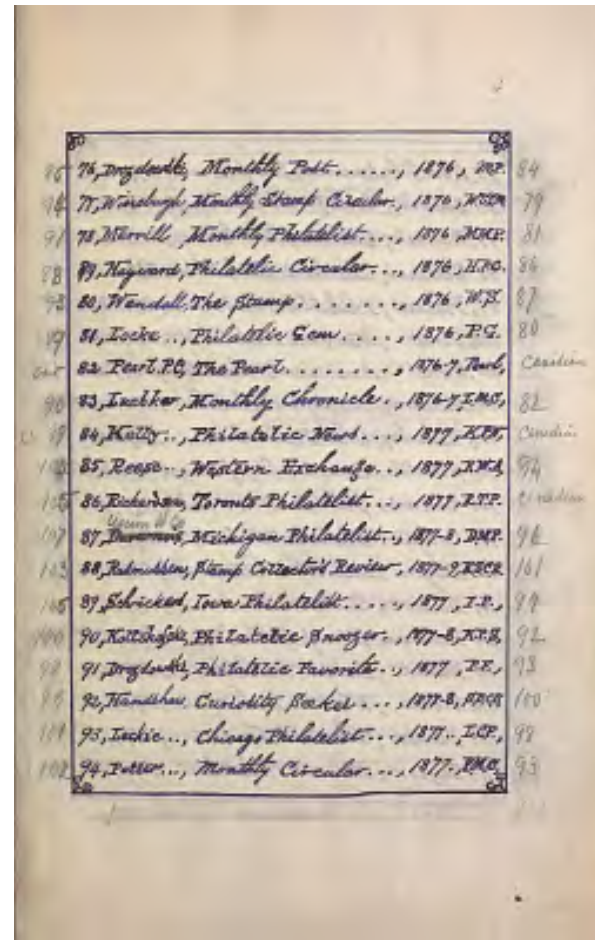 76, Drozdowski, Monthly Post......, 1876, M.P. 84
77, Winslough, Monthly Stamp Circular., 1876, 79
91 78, Merrill, Monthly Philatelist...., 1876, M.M.P. 81
88 79, Hayward, Philatelic Circular...., 1876, H.P.C. 86
93 80, Wendall, The Stamp........, 1876, W.S. 87
89 81, Locke.., Philatelic Gem....., 1876, P.G. 80
82 Pearl P.C, The Pearl........., 1876-7, Pearl, Canadian
90 83, Luebker, Monthly Chronicle.., 1876-7, L.M.C, 82
84, Kelly.., Philatelic News...., 1877, K.P.N, Canadian
85, Reese.., Western Exchange..., 1877, 94
86, Richardson, Toronto Philatelist..., 1877, R.T.P. Canadian
107 87, Michigan Philatelist.., 1877-8, D.M.P. 96
103 88, Rasmussen, Stamp Collector's Review, 1877-9, R.S.C.R, 101
89, Schricker, Iowa Philatelist....., 1877, I.P., 99
100 90, Philatelic Snoozer.., 1877-8, K.P.S, 92
91, Drozdowski, Philatelic Favorite.., 1877, P.F., 93
92, Handshaw, Curiosity Seeker...., 1877-8, 100
93, Leckie.., Chicago Philatelist...., 1877.., L.C.P., 98
102 94, Potter..., Monthly Circular...., 1877., P.M.C. 93